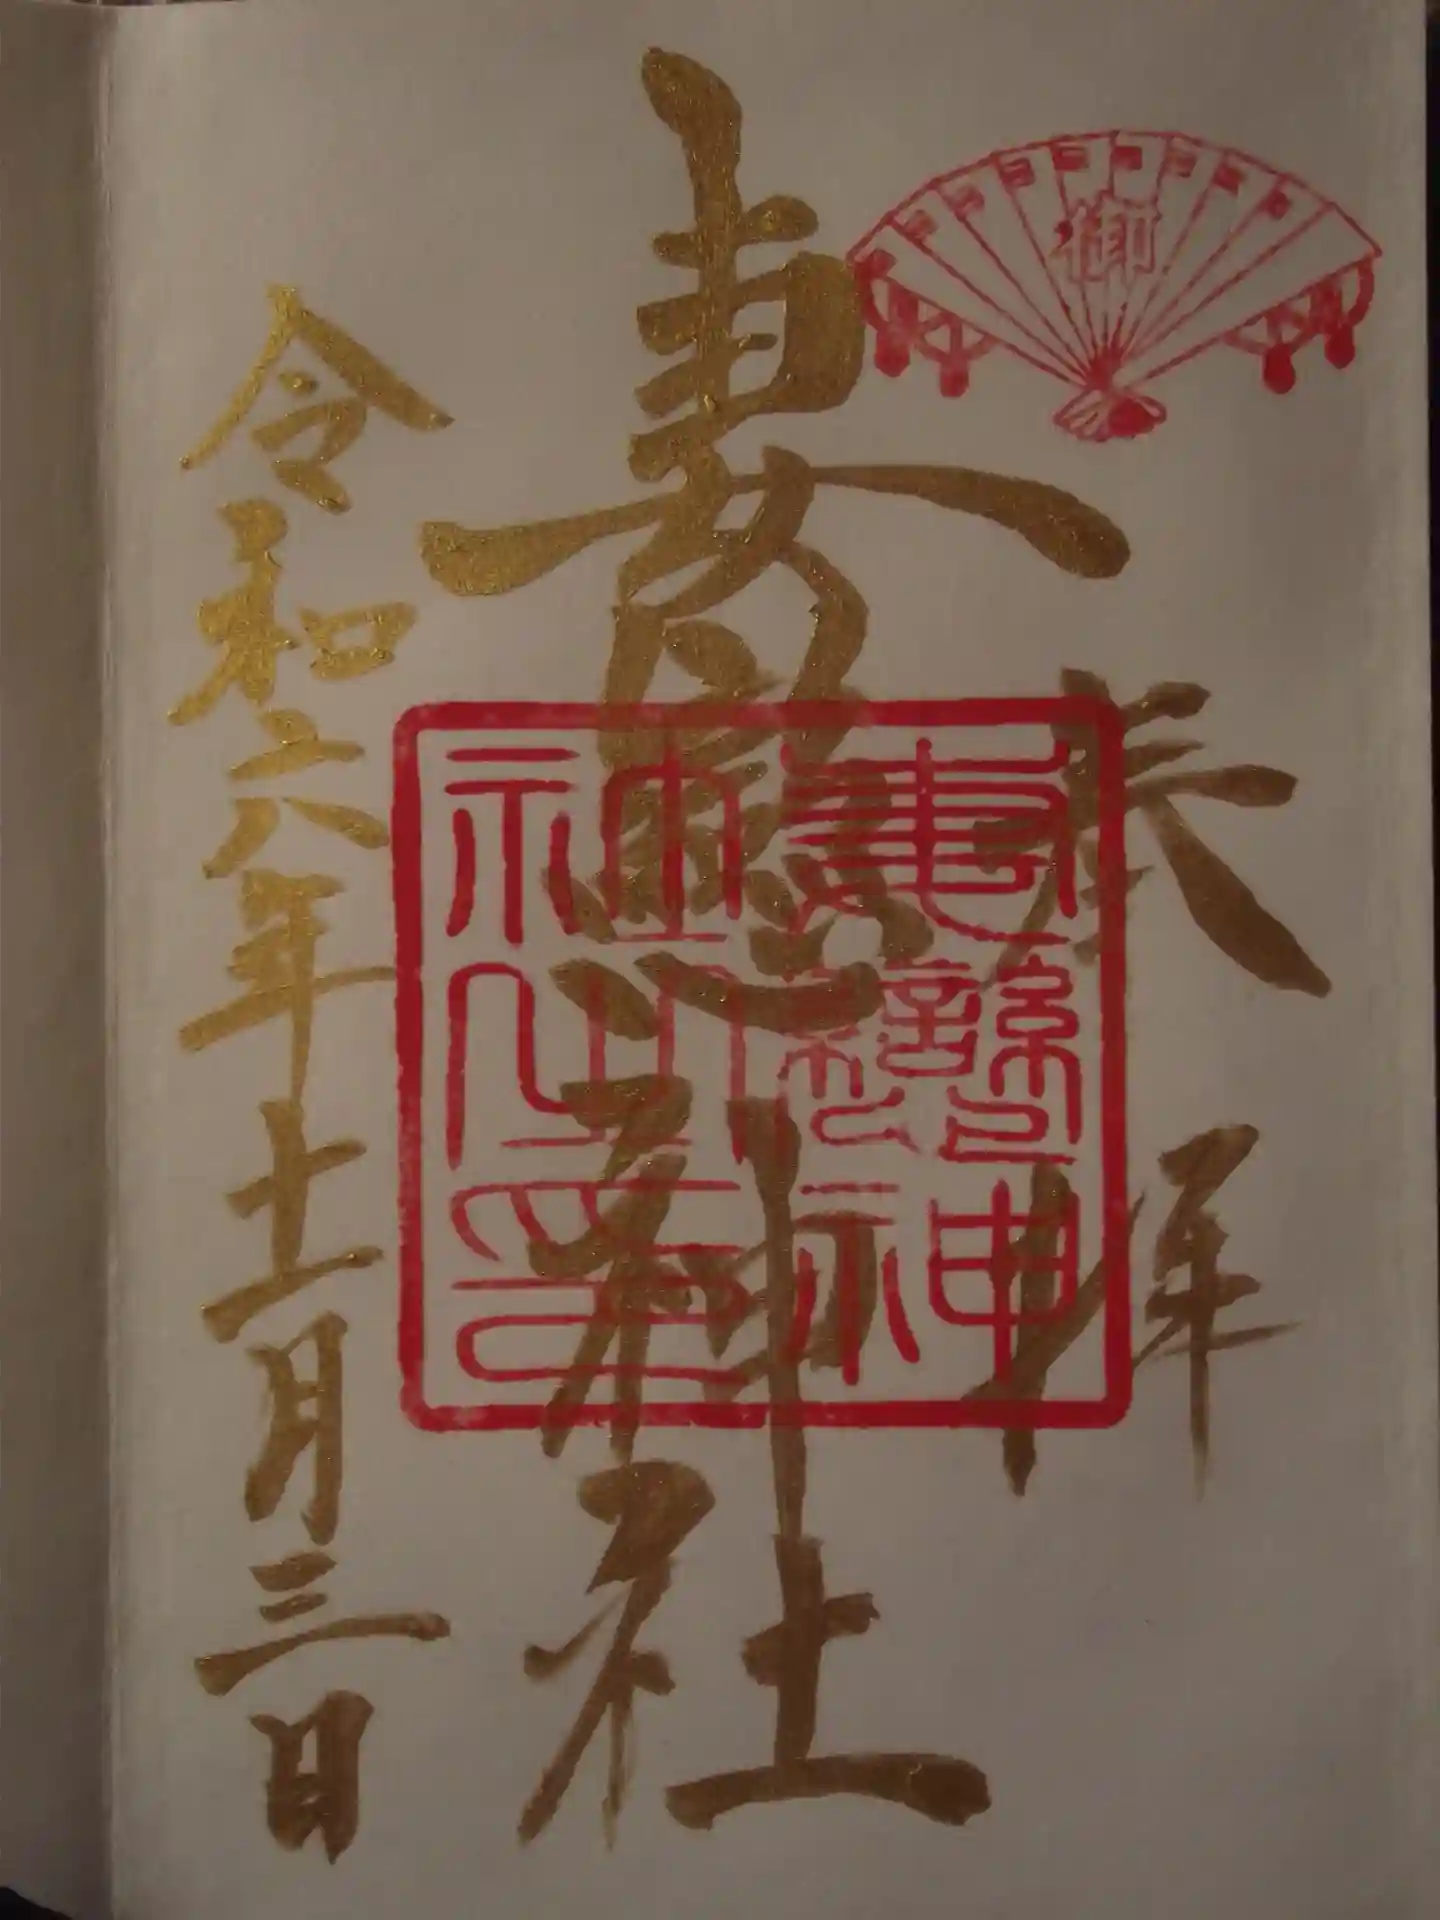 御
奉拝
妻戀神社
妻戀神
社之印
令和六年十一月三日